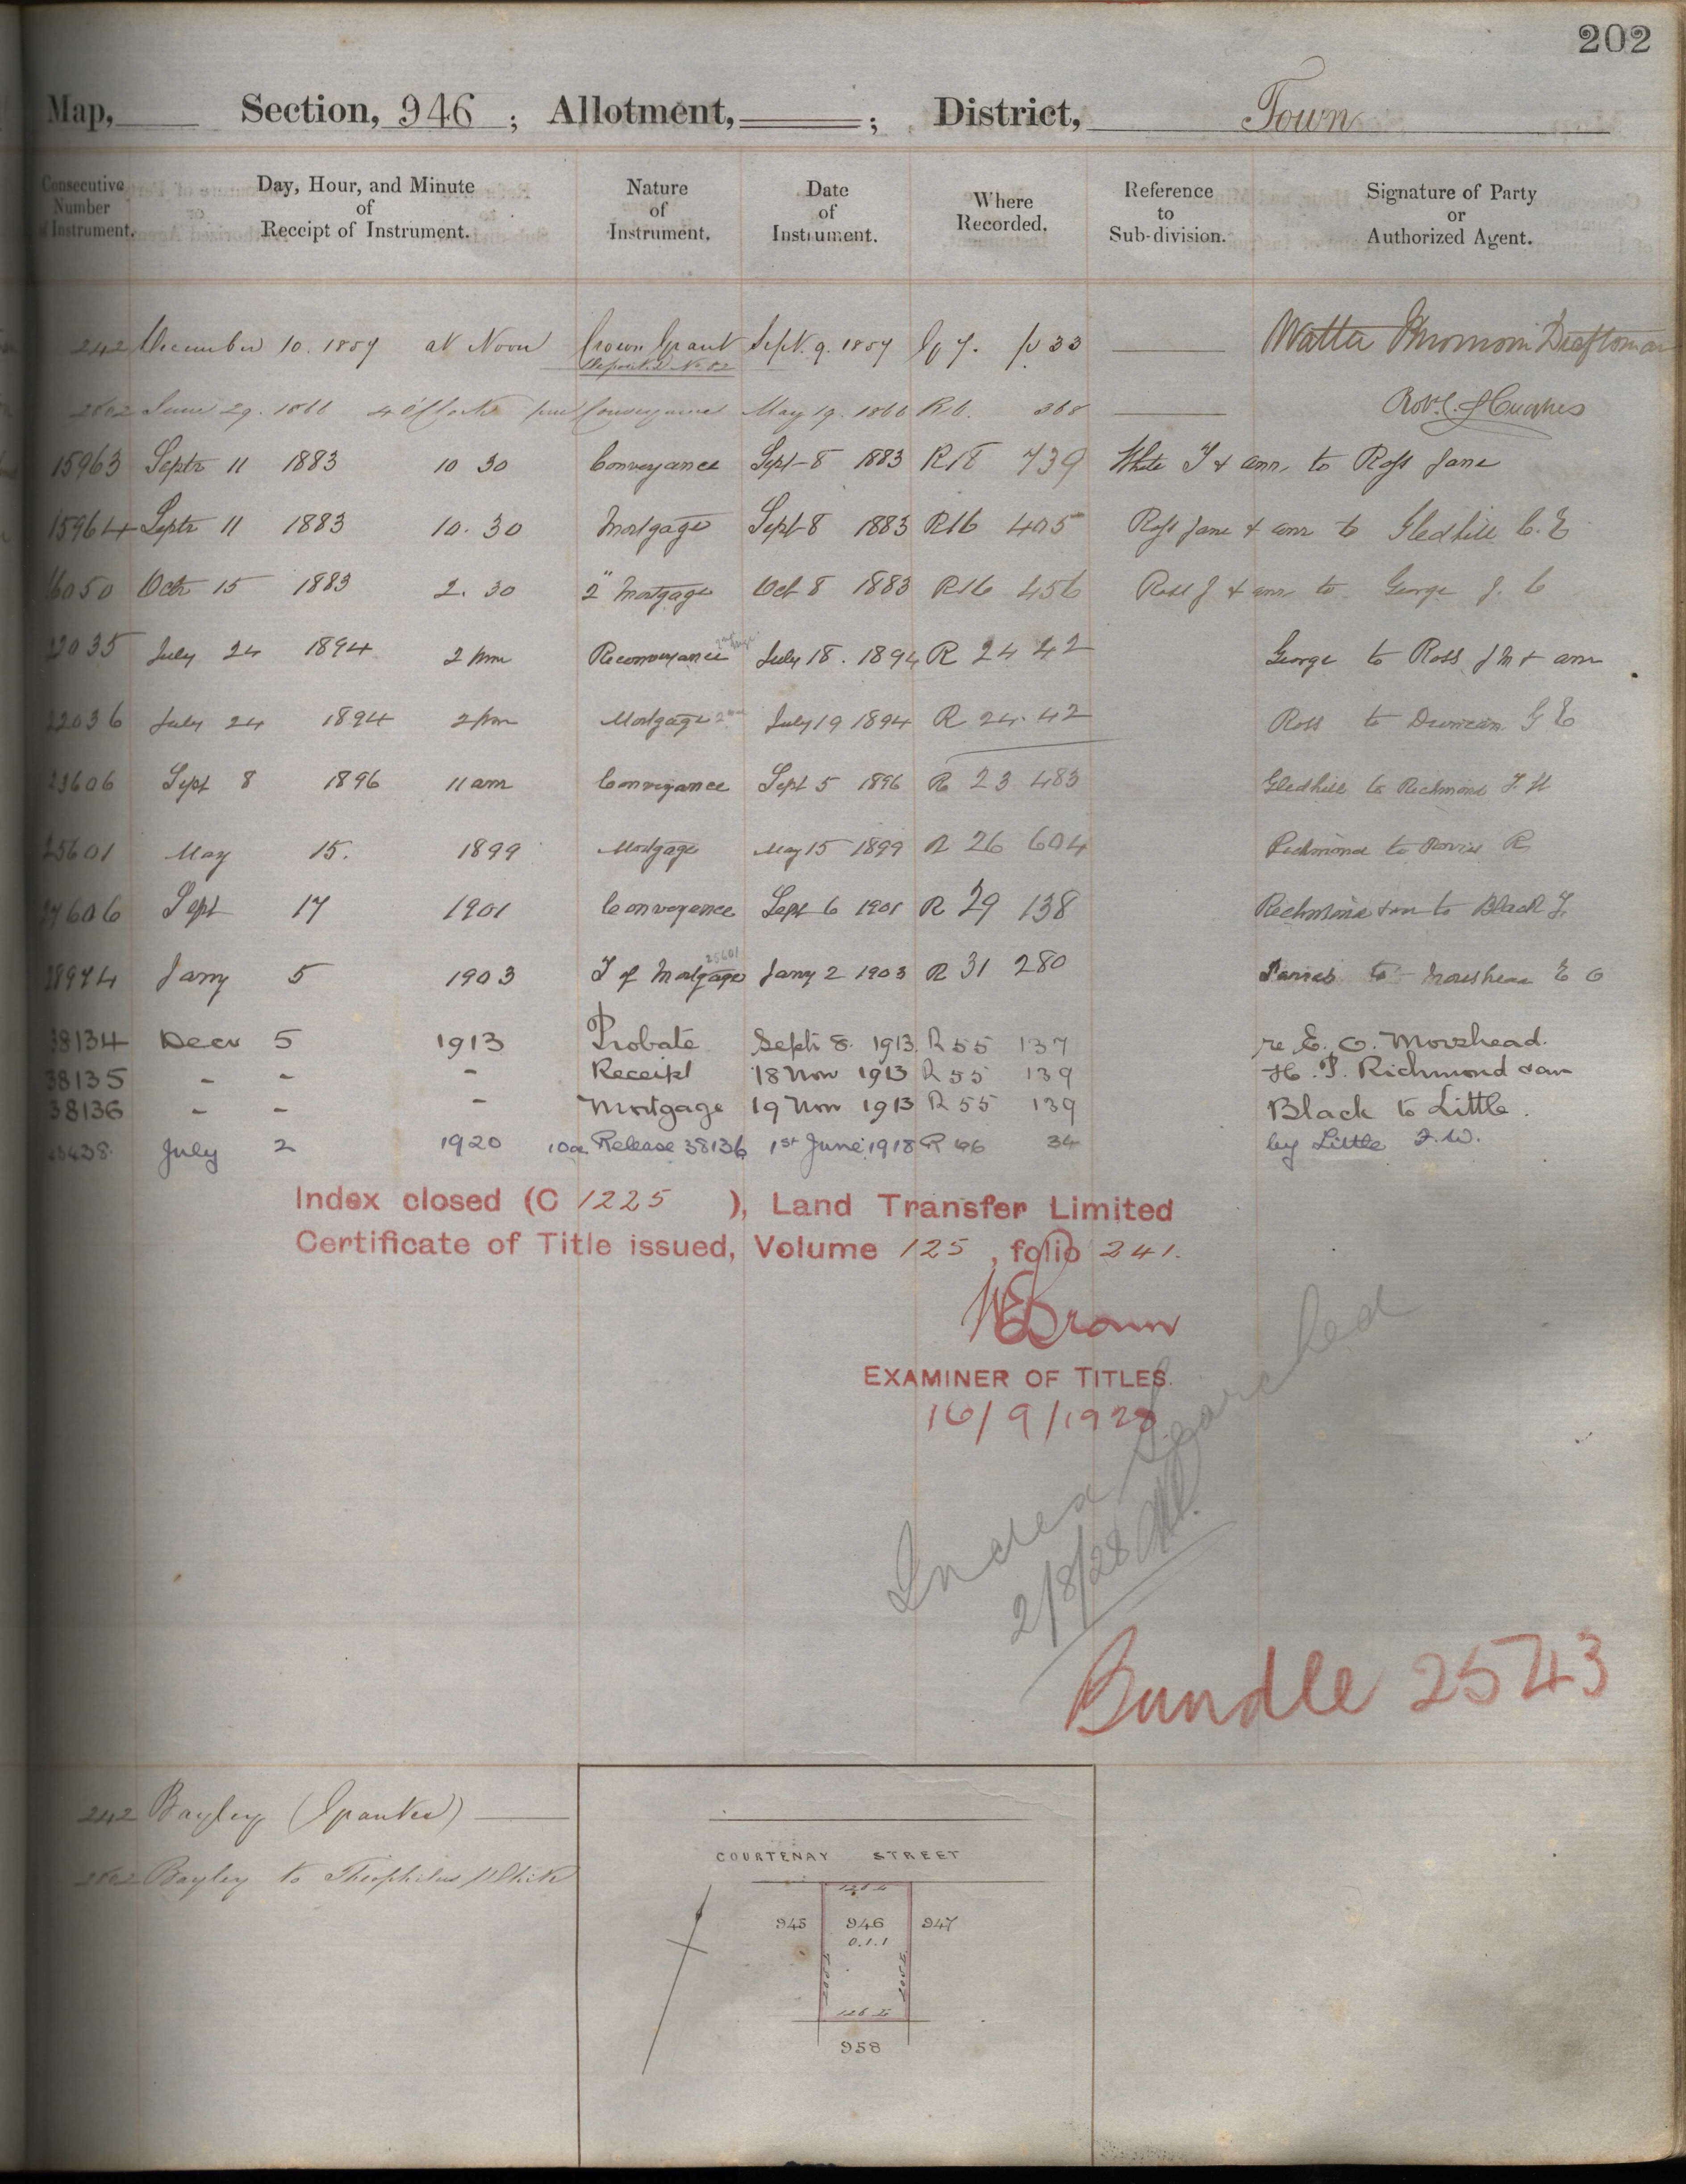 202
Map, Section, 946 ; Allotment, ; District, Town
Consecutive Number of Instrument.
Day, Hour, and Minute of Receipt of Instrument.
Nature of Instrument.
Date of Instrument.
Where Recorded.
Reference to Sub-division.
Signature of Party or Authorized Agent.
242 December 10. 1857 at Noon Crown Grant Sept. 9. 1857 G 7. p 33 Draftsman
Deposited No 82
2802 June 29. 1866 4 o'Clock pm Conveyance May 19. 1866 R6. 368 Robt. C. Hughes
15963 Septr 11 1883 10 30 Conveyance Sept 8 1883 R18 739 White T & anr, to Ross Jane
15964 Septr 11 1883 10. 30 Mortgage Sept 8 1883 R16 405 Ross Jane & anr to Gledhill C. E
16050 Octr 15 1883 2. 30 2" Mortgage Oct 8 1883 R16 456 Ross J & anr to George J. C
22035 July 24 1894 2 pm Reconveyance July 18. 1894 R 24 42 George to Ross J M & anr
22036 July 24 1894 2 pm Mortgage 2nd July 19 1894 R 24. 42 Ross to Duncan G E
23606 Sept 8 1896 11 am Conveyance Sept 5 1896 R 23 483 Gledhill to Richmond F. H
25601 May 15. 1899 Mortgage May 15 1899 R 26 604 Richmond to R
27606 Sept 17 1901 Conveyance Sept 6 1901 R 29 138 Richmond & anr to Black F.
25601
28974 Jany 5 1903 T of Mortgage Jany 2 1903 R 31 280 to Morshead E O
38134 Decr 5 1913 Probate Septr 8. 1913. R 55 137 re E. O. Morshead.
38135 - - - Receipt 18 Nov 1913 R 55 139 H. P. Richmond & anr
38136 - - - Mortgage 19 Nov 1913 R 55 139 Black to Little.
July 2 1920 10a Release 38136 1st June 1918 R 66 34 by Little F. W.
Index closed (C 1225 ), Land Transfer Limited
Certificate of Title issued, Volume 125 , folio 241.
W E Brown
EXAMINER OF TITLES.
16/9/1928
Index Searched
2/8/28
Bundle 2543
242 Bayley (Grantee)
2802 Bayley to Theophilus White
COURTENAY STREET
126 L
945 946 947
0.1.1
205 L 205 L
126 L
958